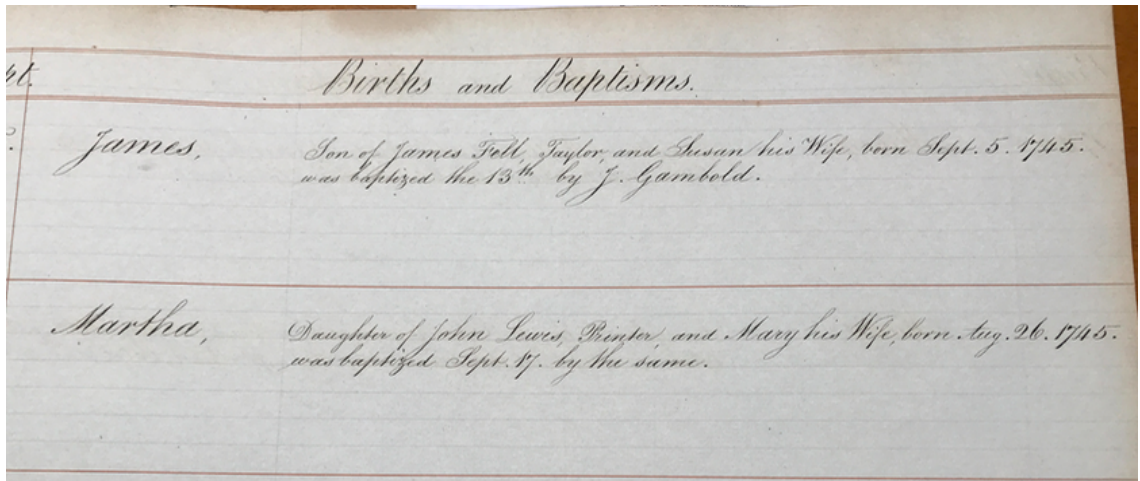 Births and Baptisms.
James,
Son of James Fell, Taylor, and Susan his Wife, born Sept. 5. 1745.
was baptized the 13th by J. Gambold.
Martha,
Daughter of John Lewis, Printer, and Mary his Wife, born Aug. 26. 1745.
was baptized Sept. 17. by the same.